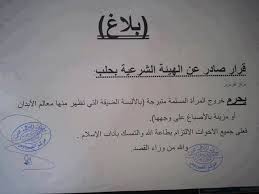 (بلاغ)
قرار صادر عن الهيئة الشرعية بحلب
يحرم خروج المرأة المسلمة متبرجة (بالألبسة الضيقة التي تظهر منها معالم الأبدان
أو مزينة بالأصباغ على وجهها).
فعلى جميع الأخوات الالتزام بطاعة الله والتمسك بآداب الإسلام.
والله من وراء القصد